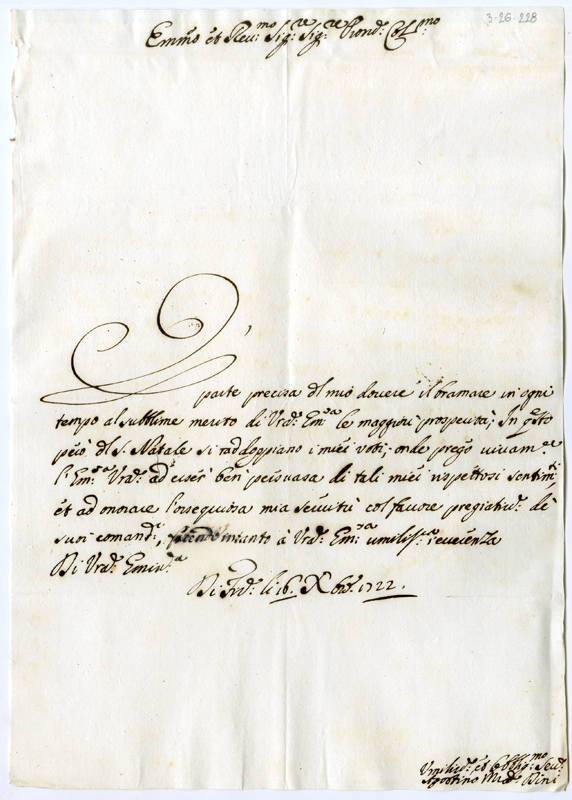 3-26-228
Emm̃o et Reu:mo Sig:re Sig:re Prond: Col:mo
E' parte precisa del mio douere il bramare in ogni
tempo al sublime merito di Vrã: Em:za le maggiori prosperità; In q̃sto
però del S. Natale si raddoppiano i miei voti; onde prego viuam:te
l'Em:za Vrã: ad esser ben persuasa di tali miei rispettosi sentim:ti
et ad onorare l'ossequiosa mia seruitù col fauore pregiatis: de
suoi comandi, facendo intanto à Vrã: Em:za umilis:ma reuerenza
Di Vrã: Eminz:a
Di li 16. Xbre: 1722.
Umilis: et Obblig:mo Seru:
Agostino Dini